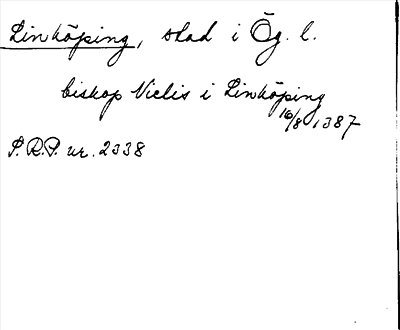 Linköping, stad i Ög. l.
biskop Niclis i Linköping
16/8 1387
S.R.P. nr. 2338